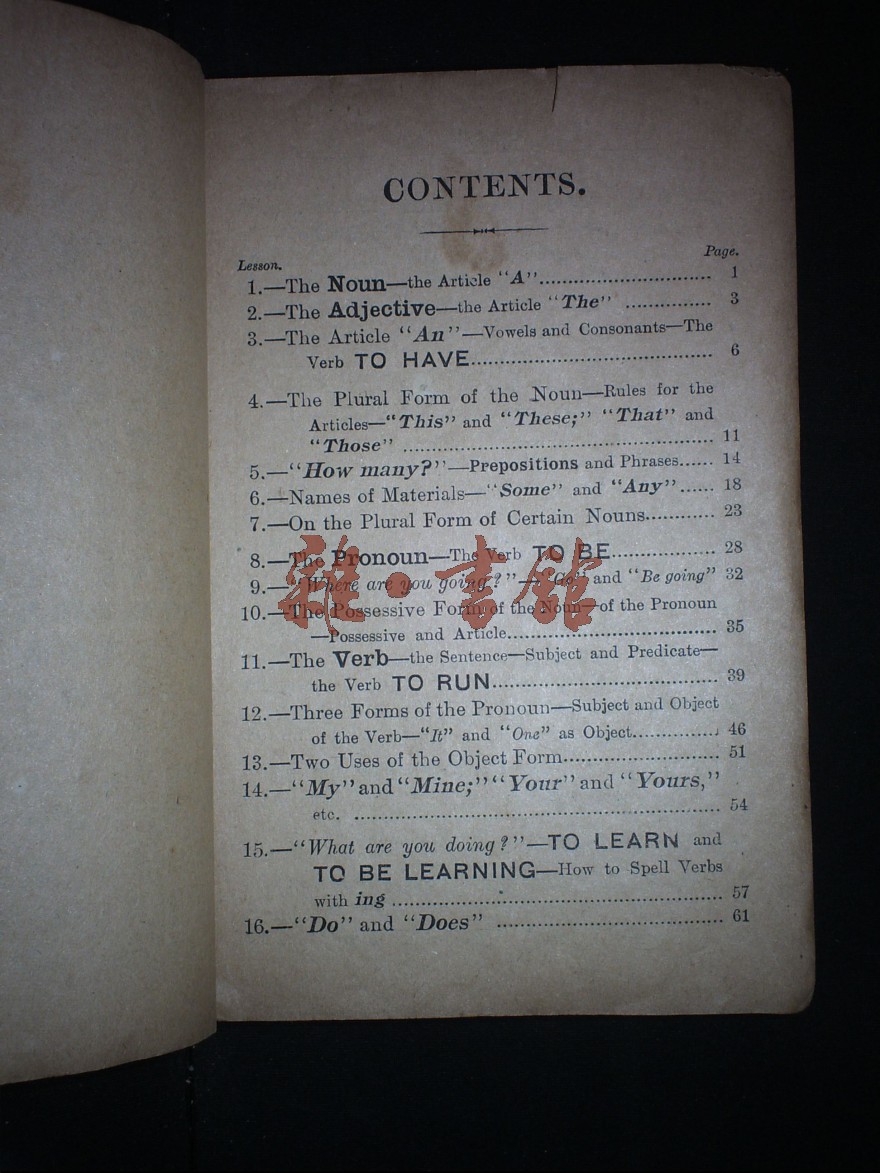 CONTENTS.
Lesson. Page.
1.—The Noun—the Article "A".............................. 1
2.—The Adjective—the Article "The" ............... 3
3.—The Article "An"—Vowels and Consonants—The
Verb TO HAVE.......................................... 6
4.—The Plural Form of the Noun—Rules for the
Articles—"This" and "These;" "That" and
"Those" ...................................................... 11
5.—"How many?"—Prepositions and Phrases...... 14
6.—Names of Materials—"Some" and "Any"...... 18
7.—On the Plural Form of Certain Nouns............ 23
8.—The Pronoun—The Verb TO BE.................. 28
9.—"Where are you going?"—"Go" and "Be going" 32
10.—The Possessive Form of the Noun—of the Pronoun
—Possessive and Article..................................... 35
11.—The Verb—the Sentence—Subject and Predicate—
the Verb TO RUN....................................... 39
12.—Three Forms of the Pronoun—Subject and Object
of the Verb—"It" and "One" as Object.............. 46
13.—Two Uses of the Object Form........................... 51
14.—"My" and "Mine;" "Your" and "Yours,"
etc. ................................................................ 54
15.—"What are you doing?"—TO LEARN and
TO BE LEARNING—How to Spell Verbs
with ing .......................................................... 57
16.—"Do" and "Does" ....................................... 61
雜·書館